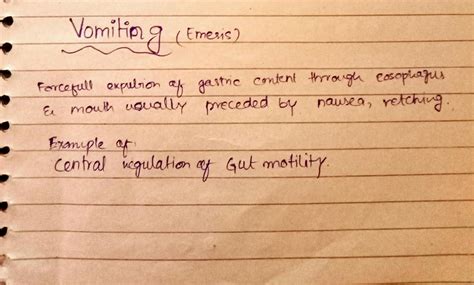 Vomiting (Emesis)
Forcefull expulsion of gastric content through eosophagus
& mouth usually preceded by nausea, retching.
Example of
Central regulation of Gut motility.